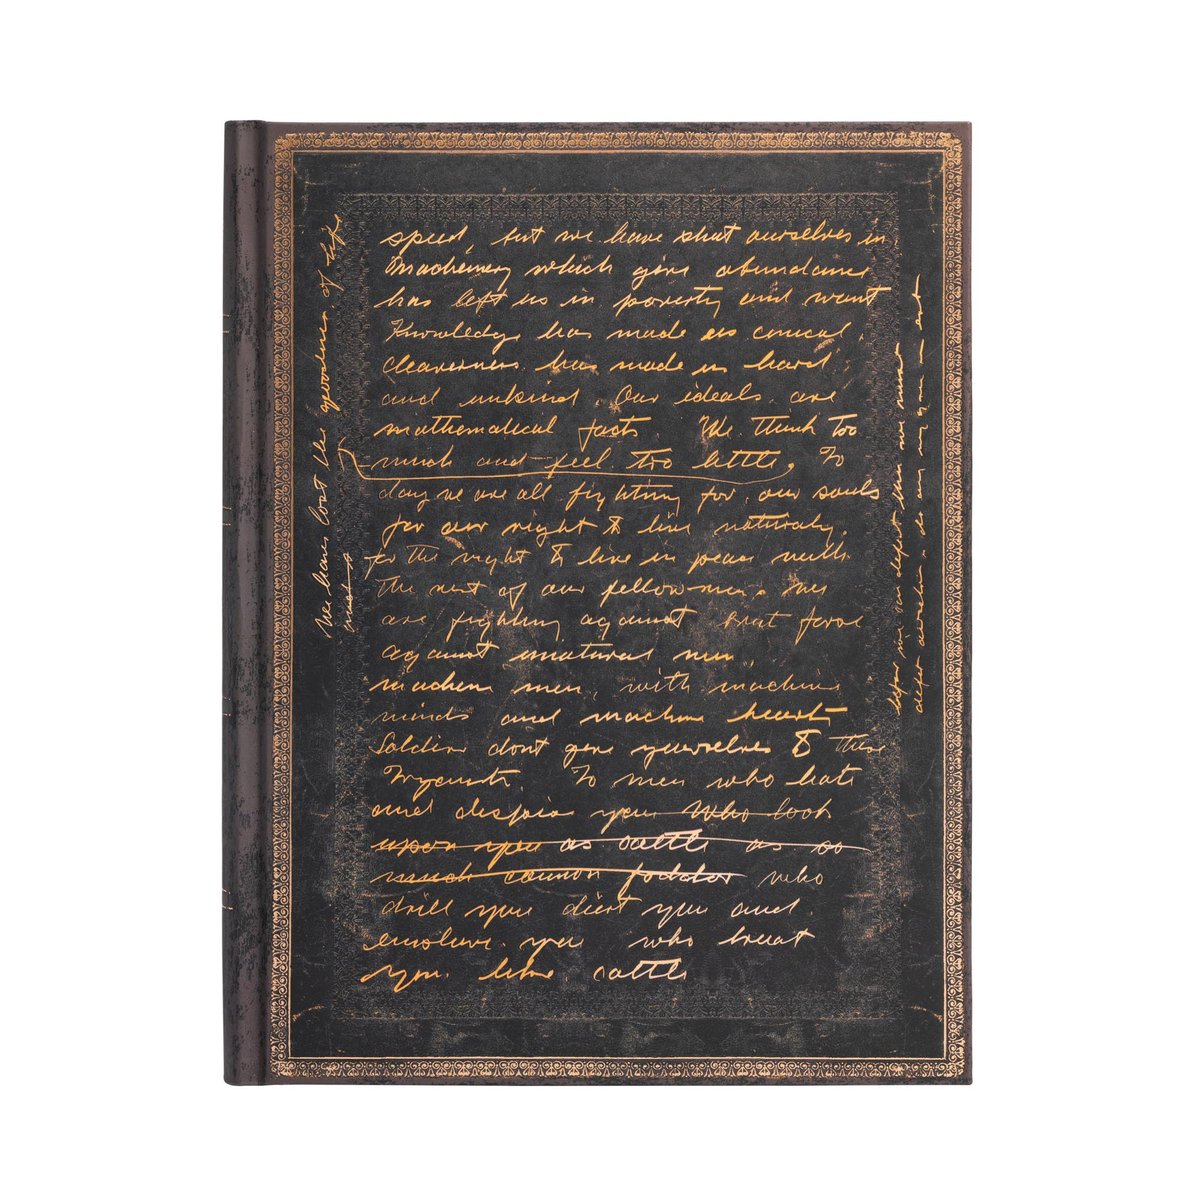 speed, but we have shut ourselves in
Machenery which give abundance
has left us in poverty and want
Knowledge has made us cinical,
cleaverness has made us hard
and unkind. Our ideals are
mathematical facts. We think too
much and feel too little. To
day we are all fighting for, our souls
for our right to live naturaly.
for the right to live in peace with
the rest of our fellowmen.
are fighting against brut force
against unatural men,
machen men, with machine
minds and machine hearts
Soldiers dont give yourselves to these
To men who hate
and despise you who look
upon you as cattle as so
much cannon foddor who
drill you diert you and
enslave you who treat
you like cattle
We have lost the goodness of life